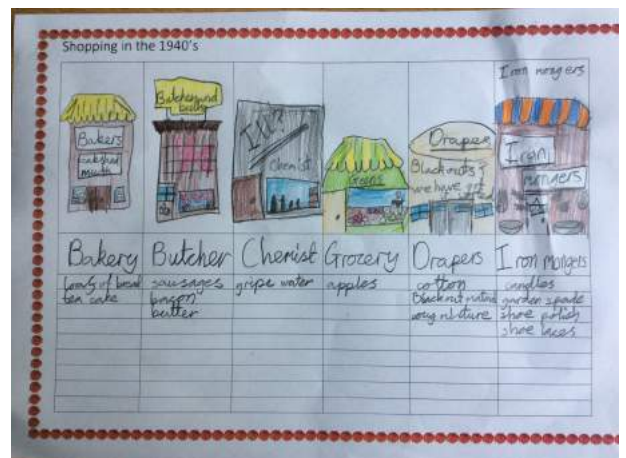 Shopping in the 1940's
Iron mongers
Butcher and
Bakers
Ill?
Chemist
Drapers
Blackouts?
we have got
Iron
mongers
Bakery Butcher Chemist Grocery Drapers Iron mongers
loafs of bread sausages gripe water apples cotton candles
tea cake bacon Blackout garden spade
butter shoe polish
shoe laces